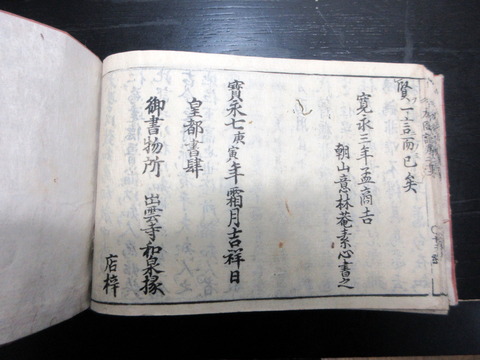 賢一言而已矣
寛永三年孟商吉
朝山意林菴素心書之
寳永七庚寅年霜月吉祥日
皇都書肆
御書物所 出雲寺和泉掾
店梓